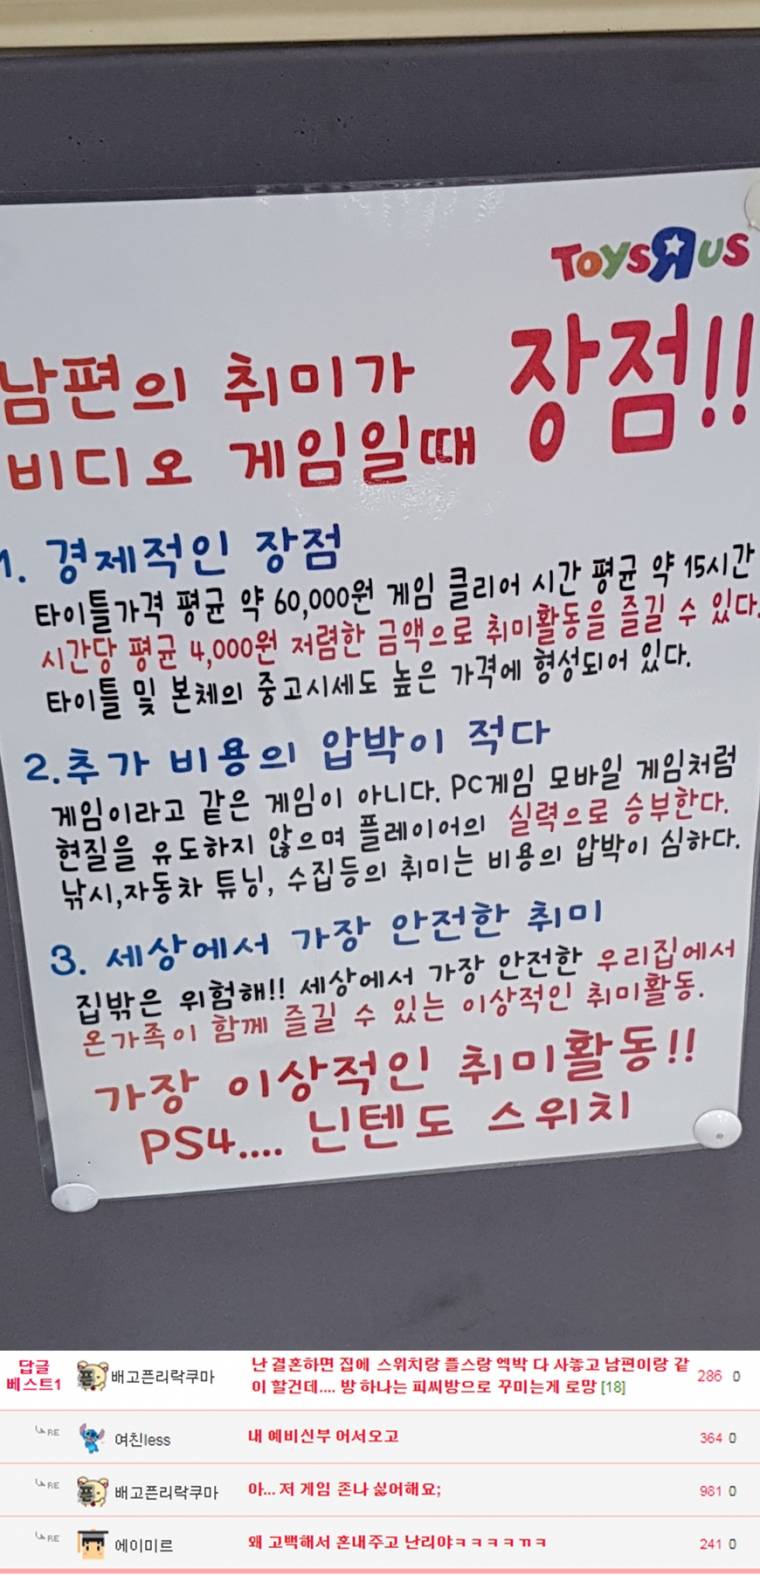 TOYSRUS
남편의 취미가 장점!!
비디오 게임일때
1. 경제적인 장점
타이틀가격 평균 약 60,000원 게임 클리어 시간 평균 약 15시간
시간당 평균 4,000원 저렴한 금액으로 취미활동을 즐길 수 있다.
타이틀 및 본체의 중고시세도 높은 가격에 형성되어 있다.
2.추가 비용의 압박이 적다
게임이라고 같은 게임이 아니다. PC게임 모바일 게임처럼
현질을 유도하지 않으며 플레이어의 실력으로 승부한다.
낚시,자동차 튜닝, 수집등의 취미는 비용의 압박이 심하다.
3. 세상에서 가장 안전한 취미
집밖은 위험해!! 세상에서 가장 안전한 우리집에서
온가족이 함께 즐길 수 있는 이상적인 취미활동.
가장 이상적인 취미활동!!
PS4.... 닌텐도 스위치
답글
베스트1
배고픈리락쿠마
난 결혼하면 집에 스위치랑 플스랑 엑박 다 사놓고 남편이랑 같
이 할건데.... 방 하나는 피씨방으로 꾸미는게 로망 [18]
286 0
RE 여친less 내 예비신부 어서오고 364 0
RE 배고픈리락쿠마 아... 저 게임 존나 싫어해요; 981 0
RE 에이미르 왜 고백해서 혼내주고 난리야ㅋㅋㅋㅋㄲㅋ 241 0